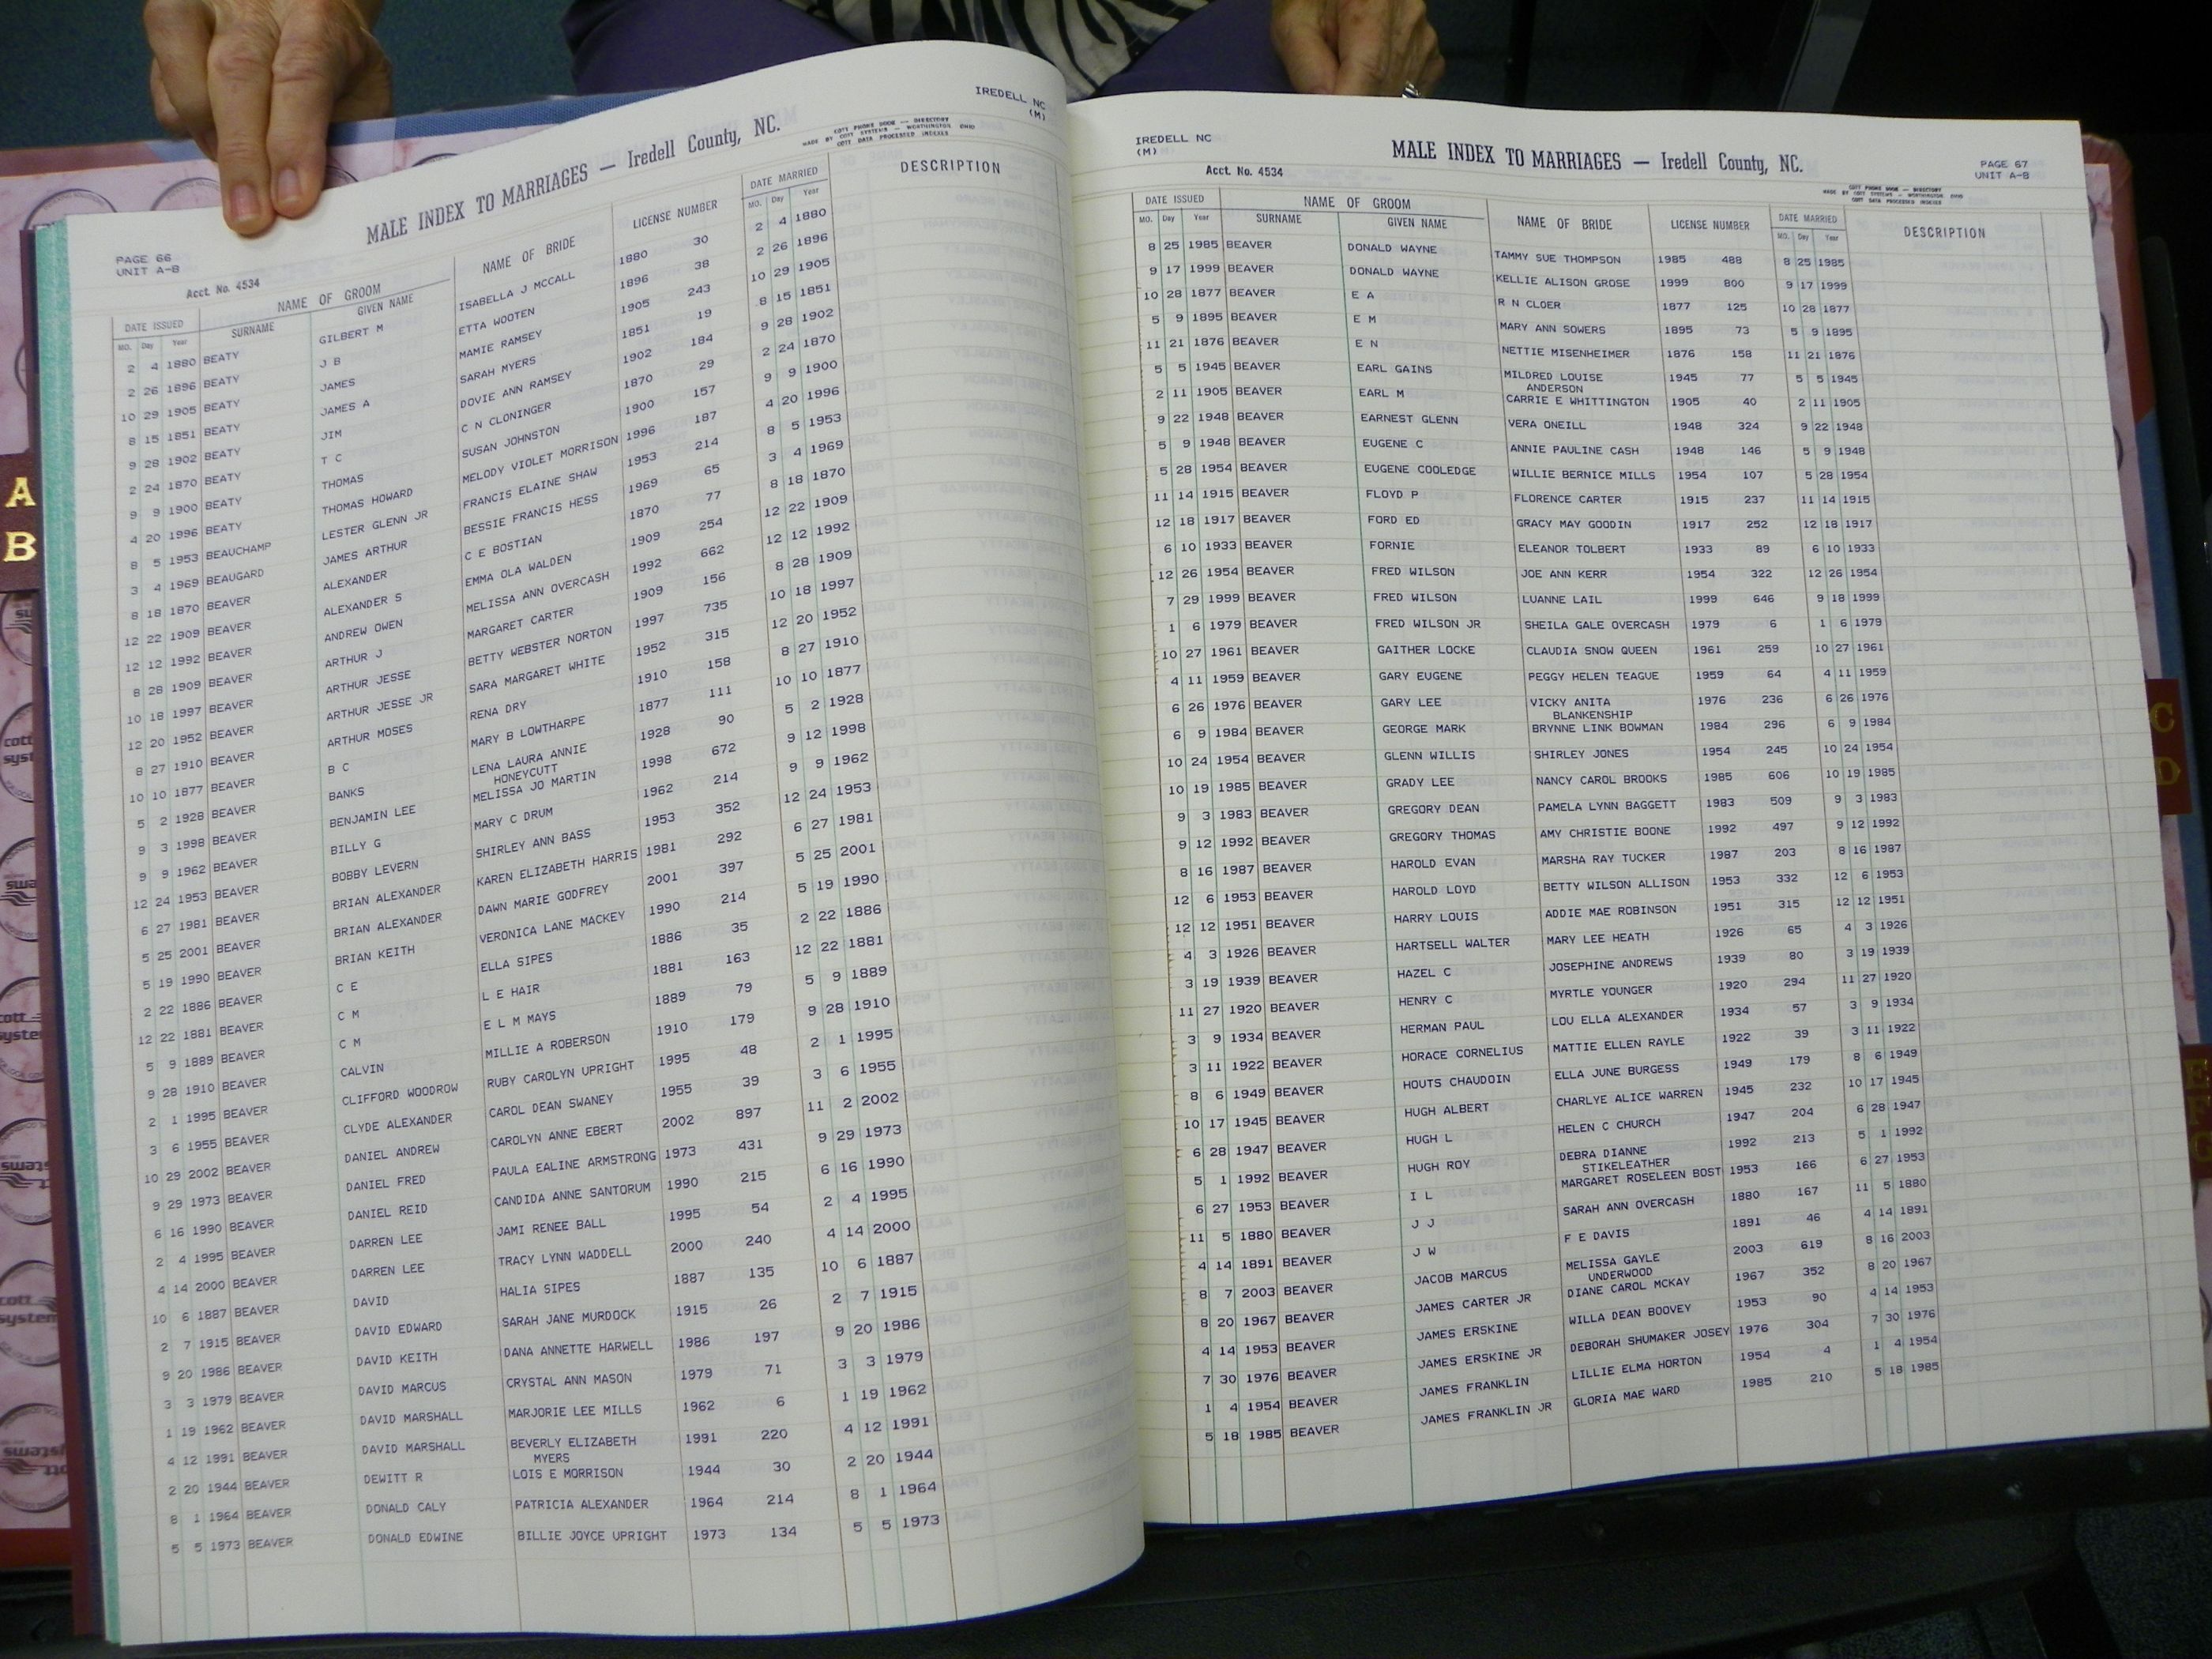 IREDELL NC
(M)
MALE INDEX TO MARRIAGES — Iredell County, NC.
COTT PHONE BOOK — DIRECTORY
MADE BY COTT SYSTEMS — WORTHINGTON OHIO
COTT DATA PROCESSED INDEXES
PAGE 66
UNIT A-B
Acct. No. 4534
DATE ISSUED NAME OF GROOM NAME OF BRIDE LICENSE NUMBER DATE MARRIED DESCRIPTION
MO. Day Year SURNAME GIVEN NAME MO. Day Year
2 4 1880 BEATY GILBERT M ISABELLA J MCCALL 1880 30 2 4 1880
2 26 1896 BEATY J B ETTA WOOTEN 1896 38 2 26 1896
10 29 1905 BEATY JAMES MAMIE RAMSEY 1905 243 10 29 1905
8 15 1851 BEATY JAMES A SARAH MYERS 1851 19 8 15 1851
9 28 1902 BEATY JIM DOVIE ANN RAMSEY 1902 184 9 28 1902
2 24 1870 BEATY T C C N CLONINGER 1870 29 2 24 1870
9 9 1900 BEATY THOMAS SUSAN JOHNSTON 1900 157 9 9 1900
4 20 1996 BEATY THOMAS HOWARD MELODY VIOLET MORRISON 1996 187 4 20 1996
8 5 1953 BEAUCHAMP LESTER GLENN JR FRANCIS ELAINE SHAW 1953 214 8 5 1953
3 4 1969 BEAUGARD JAMES ARTHUR BESSIE FRANCIS HESS 1969 65 3 4 1969
8 18 1870 BEAVER ALEXANDER C E BOSTIAN 1870 77 8 18 1870
12 22 1909 BEAVER ALEXANDER S EMMA OLA WALDEN 1909 254 12 22 1909
12 12 1992 BEAVER ANDREW OWEN MELISSA ANN OVERCASH 1992 662 12 12 1992
8 28 1909 BEAVER ARTHUR J MARGARET CARTER 1909 156 8 28 1909
10 18 1997 BEAVER ARTHUR JESSE BETTY WEBSTER NORTON 1997 735 10 18 1997
12 20 1952 BEAVER ARTHUR JESSE JR SARA MARGARET WHITE 1952 315 12 20 1952
8 27 1910 BEAVER ARTHUR MOSES RENA DRY 1910 158 8 27 1910
10 10 1877 BEAVER B C MARY B LOWTHARPE 1877 111 10 10 1877
5 2 1928 BEAVER BANKS LENA LAURA ANNIE 1928 90 5 2 1928
HONEYCUTT
9 3 1998 BEAVER BENJAMIN LEE MELISSA JO MARTIN 1998 672 9 12 1998
9 9 1962 BEAVER BILLY G MARY C DRUM 1962 214 9 9 1962
12 24 1953 BEAVER BOBBY LEVERN SHIRLEY ANN BASS 1953 352 12 24 1953
6 27 1981 BEAVER BRIAN ALEXANDER KAREN ELIZABETH HARRIS 1981 292 6 27 1981
5 25 2001 BEAVER BRIAN ALEXANDER DAWN MARIE GODFREY 2001 397 5 25 2001
5 19 1990 BEAVER BRIAN KEITH VERONICA LANE MACKEY 1990 214 5 19 1990
2 22 1886 BEAVER C E ELLA SIPES 1886 35 2 22 1886
12 22 1881 BEAVER C M L E HAIR 1881 163 12 22 1881
5 9 1889 BEAVER C M E L M MAYS 1889 79 5 9 1889
9 28 1910 BEAVER CALVIN MILLIE A ROBERSON 1910 179 9 28 1910
2 1 1995 BEAVER CLIFFORD WOODROW RUBY CAROLYN UPRIGHT 1995 48 2 1 1995
3 6 1955 BEAVER CLYDE ALEXANDER CAROL DEAN SWANEY 1955 39 3 6 1955
10 29 2002 BEAVER DANIEL ANDREW CAROLYN ANNE EBERT 2002 897 11 2 2002
9 29 1973 BEAVER DANIEL FRED PAULA EALINE ARMSTRONG 1973 431 9 29 1973
6 16 1990 BEAVER DANIEL REID CANDIDA ANNE SANTORUM 1990 215 6 16 1990
2 4 1995 BEAVER DARREN LEE JAMI RENEE BALL 1995 54 2 4 1995
4 14 2000 BEAVER DARREN LEE TRACY LYNN WADDELL 2000 240 4 14 2000
10 6 1887 BEAVER DAVID HALIA SIPES 1887 135 10 6 1887
2 7 1915 BEAVER DAVID EDWARD SARAH JANE MURDOCK 1915 26 2 7 1915
9 20 1986 BEAVER DAVID KEITH DANA ANNETTE HARWELL 1986 197 9 20 1986
3 3 1979 BEAVER DAVID MARCUS CRYSTAL ANN MASON 1979 71 3 3 1979
1 19 1962 BEAVER DAVID MARSHALL MARJORIE LEE MILLS 1962 6 1 19 1962
4 12 1991 BEAVER DAVID MARSHALL BEVERLY ELIZABETH 1991 220 4 12 1991
MYERS
2 20 1944 BEAVER DEWITT R LOIS E MORRISON 1944 30 2 20 1944
8 1 1964 BEAVER DONALD CALY PATRICIA ALEXANDER 1964 214 8 1 1964
5 5 1973 BEAVER DONALD EDWINE BILLIE JOYCE UPRIGHT 1973 134 5 5 1973
IREDELL NC
(M)
MALE INDEX TO MARRIAGES — Iredell County, NC.
PAGE 67
UNIT A-B
Acct. No. 4534
COTT PHONE BOOK — DIRECTORY
MADE BY COTT SYSTEMS — WORTHINGTON OHIO
COTT DATA PROCESSED INDEXES
DATE ISSUED NAME OF GROOM NAME OF BRIDE LICENSE NUMBER DATE MARRIED DESCRIPTION
MO. Day Year SURNAME GIVEN NAME MO. Day Year
8 25 1985 BEAVER DONALD WAYNE TAMMY SUE THOMPSON 1985 488 8 25 1985
9 17 1999 BEAVER DONALD WAYNE KELLIE ALISON GROSE 1999 800 9 17 1999
10 28 1877 BEAVER E A R N CLOER 1877 125 10 28 1877
5 9 1895 BEAVER E M MARY ANN SOWERS 1895 73 5 9 1895
11 21 1876 BEAVER E N NETTIE MISENHEIMER 1876 158 11 21 1876
5 5 1945 BEAVER EARL GAINS MILDRED LOUISE 1945 77 5 5 1945
ANDERSON
2 11 1905 BEAVER EARL M CARRIE E WHITTINGTON 1905 40 2 11 1905
9 22 1948 BEAVER EARNEST GLENN VERA ONEILL 1948 324 9 22 1948
5 9 1948 BEAVER EUGENE C ANNIE PAULINE CASH 1948 146 5 9 1948
5 28 1954 BEAVER EUGENE COOLEDGE WILLIE BERNICE MILLS 1954 107 5 28 1954
11 14 1915 BEAVER FLOYD P FLORENCE CARTER 1915 237 11 14 1915
12 18 1917 BEAVER FORD ED GRACY MAY GOODIN 1917 252 12 18 1917
6 10 1933 BEAVER FORNIE ELEANOR TOLBERT 1933 89 6 10 1933
12 26 1954 BEAVER FRED WILSON JOE ANN KERR 1954 322 12 26 1954
7 29 1999 BEAVER FRED WILSON LUANNE LAIL 1999 646 9 18 1999
1 6 1979 BEAVER FRED WILSON JR SHEILA GALE OVERCASH 1979 6 1 6 1979
10 27 1961 BEAVER GAITHER LOCKE CLAUDIA SNOW QUEEN 1961 259 10 27 1961
4 11 1959 BEAVER GARY EUGENE PEGGY HELEN TEAGUE 1959 64 4 11 1959
6 26 1976 BEAVER GARY LEE VICKY ANITA 1976 236 6 26 1976
BLANKENSHIP
6 9 1984 BEAVER GEORGE MARK BRYNNE LINK BOWMAN 1984 296 6 9 1984
10 24 1954 BEAVER GLENN WILLIS SHIRLEY JONES 1954 245 10 24 1954
10 19 1985 BEAVER GRADY LEE NANCY CAROL BROOKS 1985 606 10 19 1985
9 3 1983 BEAVER GREGORY DEAN PAMELA LYNN BAGGETT 1983 509 9 3 1983
9 12 1992 BEAVER GREGORY THOMAS AMY CHRISTIE BOONE 1992 497 9 12 1992
8 16 1987 BEAVER HAROLD EVAN MARSHA RAY TUCKER 1987 203 8 16 1987
12 6 1953 BEAVER HAROLD LOYD BETTY WILSON ALLISON 1953 332 12 6 1953
12 12 1951 BEAVER HARRY LOUIS ADDIE MAE ROBINSON 1951 315 12 12 1951
4 3 1926 BEAVER HARTSELL WALTER MARY LEE HEATH 1926 65 4 3 1926
3 19 1939 BEAVER HAZEL C JOSEPHINE ANDREWS 1939 80 3 19 1939
11 27 1920 BEAVER HENRY C MYRTLE YOUNGER 1920 294 11 27 1920
3 9 1934 BEAVER HERMAN PAUL LOU ELLA ALEXANDER 1934 57 3 9 1934
3 11 1922 BEAVER HORACE CORNELIUS MATTIE ELLEN RAYLE 1922 39 3 11 1922
8 6 1949 BEAVER HOUTS CHAUDOIN ELLA JUNE BURGESS 1949 179 8 6 1949
10 17 1945 BEAVER HUGH ALBERT CHARLYE ALICE WARREN 1945 232 10 17 1945
6 28 1947 BEAVER HUGH L HELEN C CHURCH 1947 204 6 28 1947
5 1 1992 BEAVER HUGH ROY DEBRA DIANNE 1992 213 5 1 1992
STIKELEATHER
6 27 1953 BEAVER I L MARGARET ROSELEEN BOST 1953 166 6 27 1953
11 5 1880 BEAVER J J SARAH ANN OVERCASH 1880 167 11 5 1880
4 14 1891 BEAVER J W F E DAVIS 1891 46 4 14 1891
8 7 2003 BEAVER JACOB MARCUS MELISSA GAYLE 2003 619 8 16 2003
UNDERWOOD
8 20 1967 BEAVER JAMES CARTER JR DIANE CAROL MCKAY 1967 352 8 20 1967
4 14 1953 BEAVER JAMES ERSKINE WILLA DEAN BOOVEY 1953 90 4 14 1953
7 30 1976 BEAVER JAMES ERSKINE JR DEBORAH SHUMAKER JOSEY 1976 304 7 30 1976
1 4 1954 BEAVER JAMES FRANKLIN LILLIE ELMA HORTON 1954 4 1 4 1954
5 18 1985 BEAVER JAMES FRANKLIN JR GLORIA MAE WARD 1985 210 5 18 1985
A
B
C
D